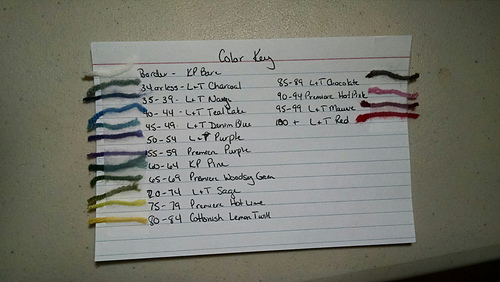 Color Key
Border - KP Bare
34 or less - L+T Charcoal
35-39 - L+T Navy
40-44 - L+T Teal
45-49 - L+T Denim Blue
50-54 L+T Purple
55-59 Premiere Purple
60-64 KP Pine
65-69 Premiere Woodsy Green
70-74 L+T Sage
75-79 Premiere Hot Lime
80-84 Cottonish Lemon Twill
85-89 L+T Chocolate
90-94 Premiere Hot Pink
95-99 L+T Mauve
100 + L+T Red